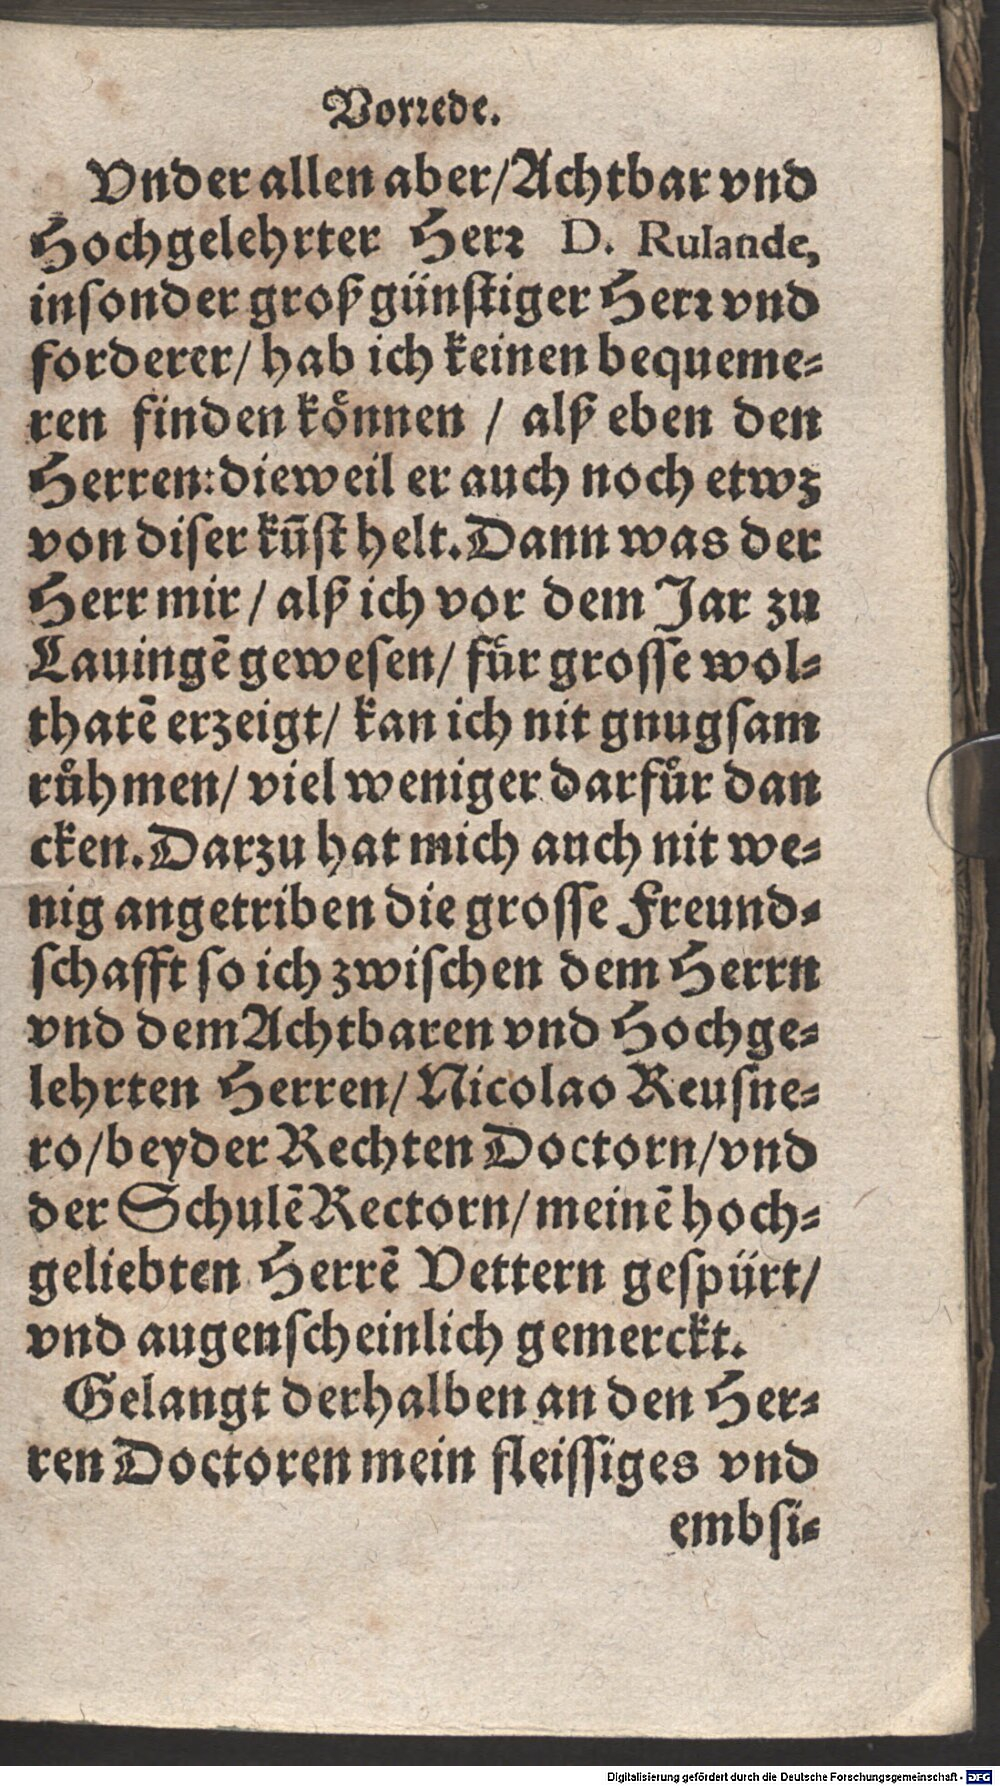 Vorrede.
Vnder allen aber/Achtbar vnd
Hochgelehrter Herr D. Rulande,
insonder großgünstiger Herr vnd
forderer/ hab ich keinen bequeme-
ren finden koͤnnen / alß eben den
Herren: dieweil er auch noch etwz
von diser kūst helt. Dann was der
Herr mir / alß ich vor dem Jar zu
Lauingē gewesen/ fuͤr grosse wol-
thatē erzeigt/ kan ich nit gnugsam
ruͤhmen/ viel weniger darfuͤr dan
cken. Darzu hat mich auch nit we-
nig angetriben die grosse Freund-
schafft so ich zwischen dem Herrn
vnd dem Achtbaren vnd Hochge-
lehrten Herren/ Nicolao Reusne-
ro/beyder Rechten Doctorn/vnd
der Schulē Rectorn/ meinē hoch-
geliebten Herrē Vettern gespürt/
vnd augenscheinlich gemerckt.
Gelangt derhalben an den Her-
ren Doctoren mein fleissiges vnd
embsi-
Digitalisierung gefördert durch die Deutsche Forschungsgemeinschaft - DFG